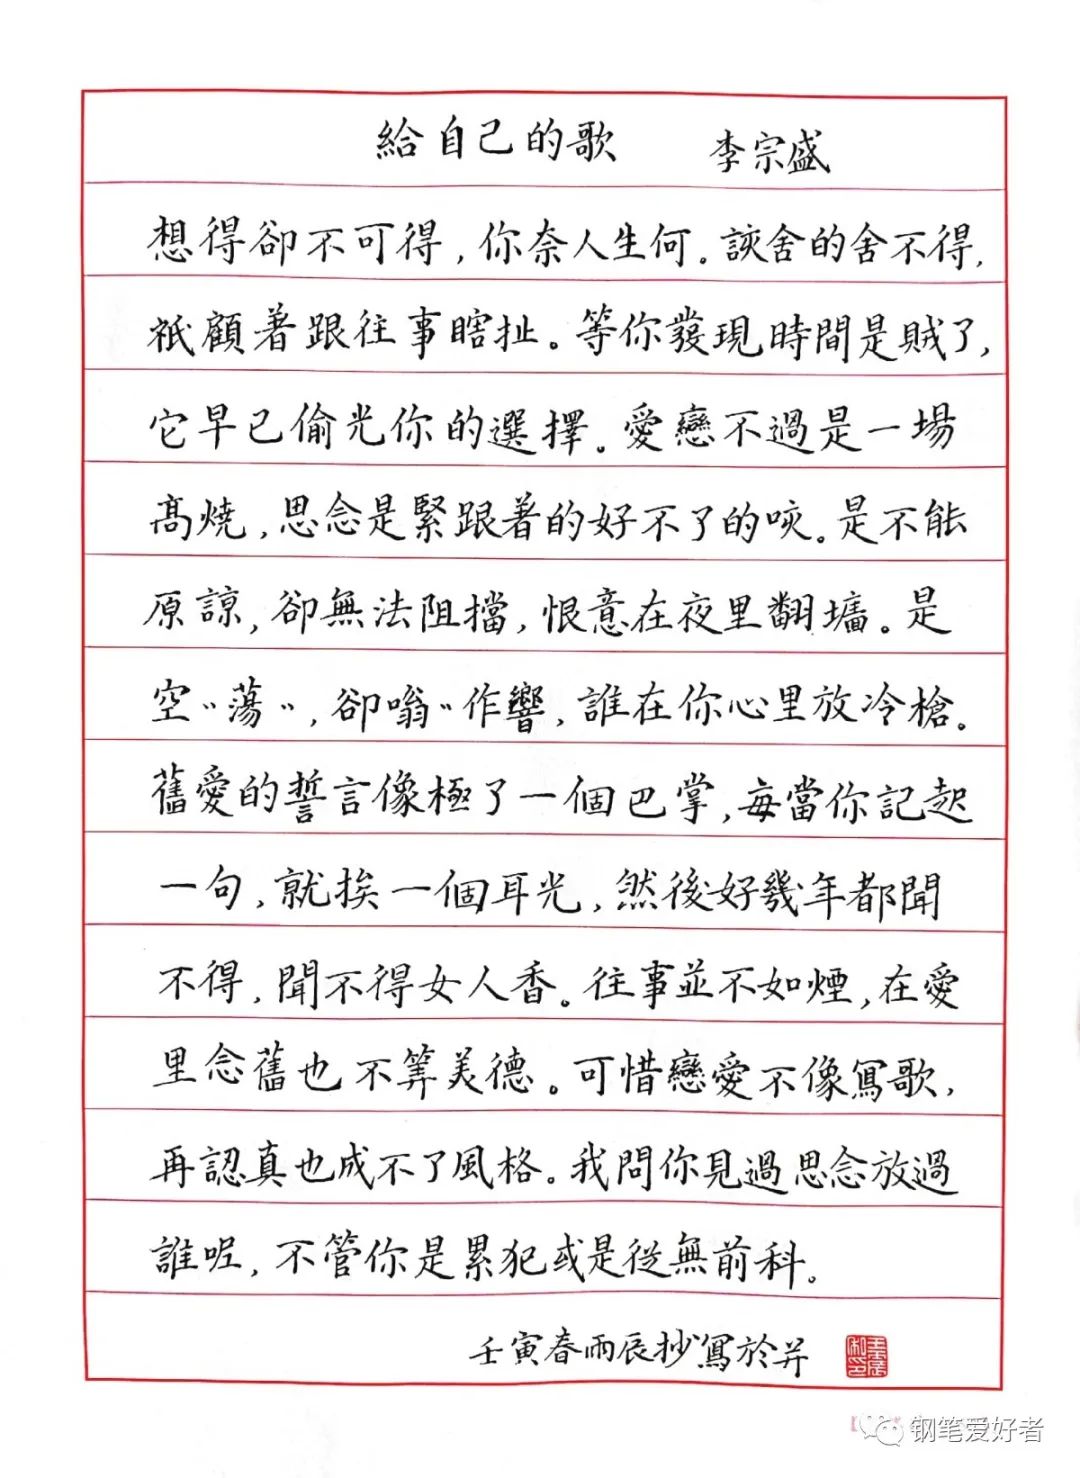 給自己的歌 李宗盛
想得卻不可得，你奈人生何。該舍的舍不得，
祇顧着跟往事瞎扯。等你發現時間是賊了，
它早已偷光你的選擇。愛戀不過是一場
高燒，思念是緊跟着的好不了的咳。是不能
原諒，卻無法阻擋，恨意在夜里翻墻。是
空〃蕩〃，卻嗡〃作響，誰在你心里放冷槍。
舊愛的誓言像極了一個巴掌，每當你記起
一句，就挨一個耳光，然後好幾年都聞
不得，聞不得女人香。往事並不如煙，在愛
里念舊也不算美德。可惜戀愛不像寫歌，
再認真也成不了風格。我問你見過思念放過
誰呢，不管你是累犯或是從無前科。
壬寅春雨辰抄寫於并
钢笔爱好者